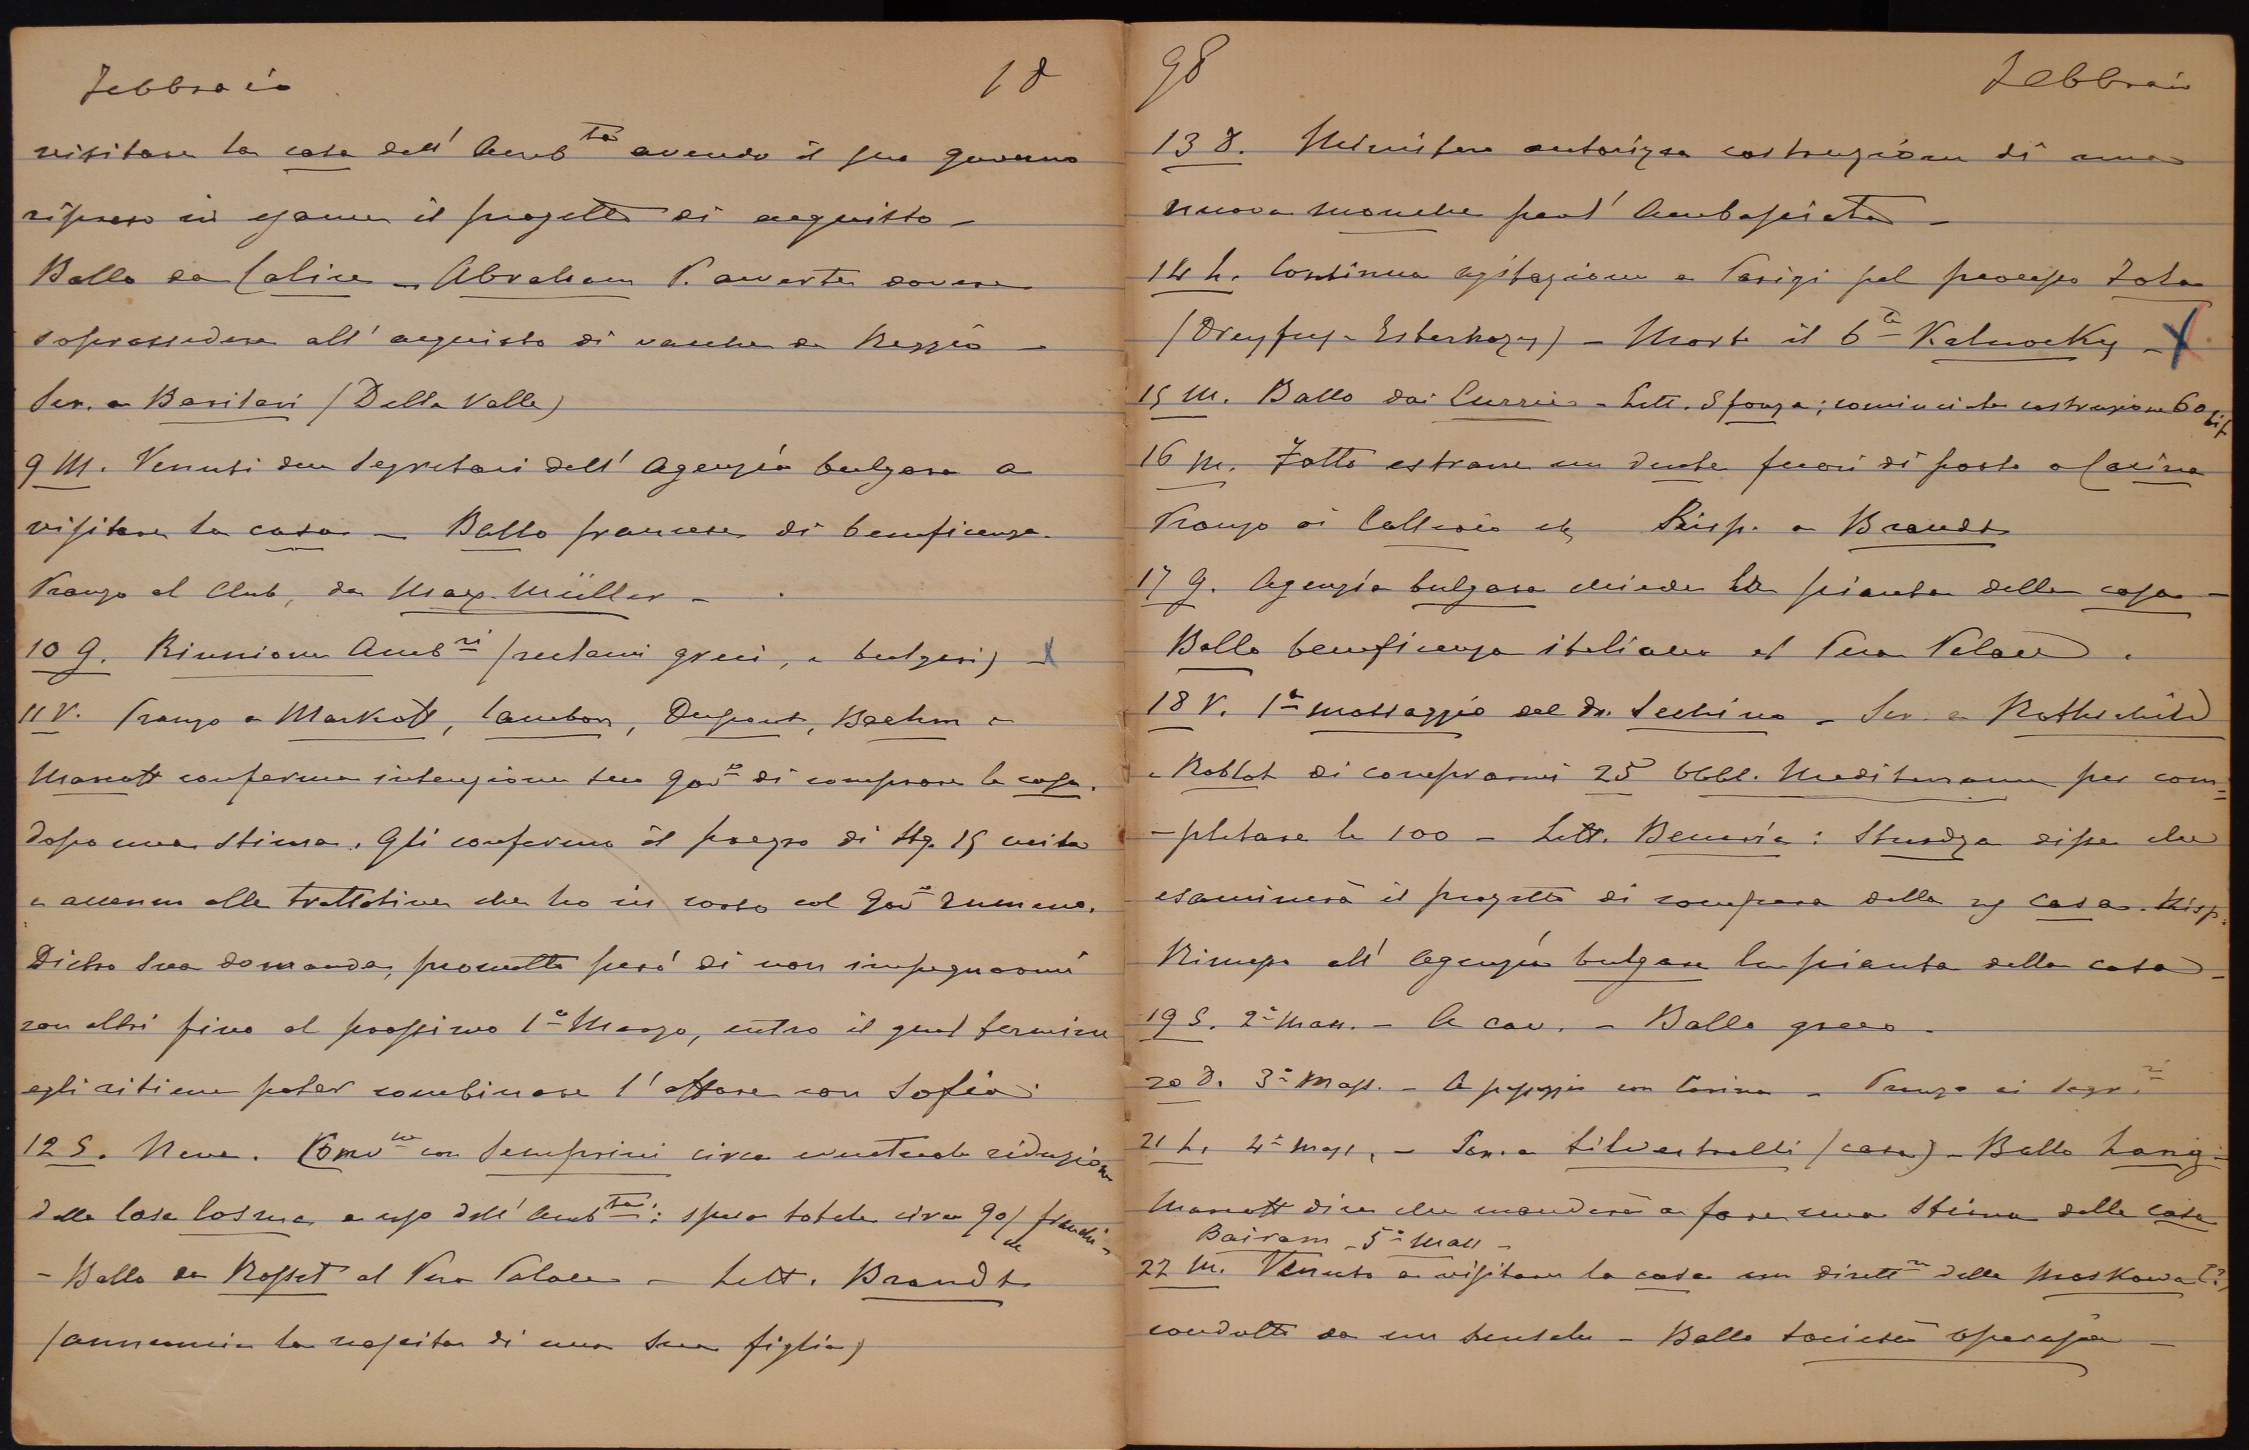 Febbraio 18
visitare la casa dell' Amb.ta avendo il suo governo
ripreso in esame il progetto di acquisto -
Ballo da Calice - Abraham P. avverte dovere
soprassedere all' acquisto di vacche da Reggio -
Scr. a Barilari (Della Valle)
9 M. Venuti due Segretari dell' Agenzia bulgara a
visitare la casa - Ballo francese di beneficenza.
Pranzo al Club, da Max Müller -
10 G. Riunione Amb.ri (reclami greci, e bulgari) - X
11 V. Pranzo a Markoff, Cambon, Dupont, Boehm e
Marcoff conferma intenzione suo Gov.o di comprare la casa.
dopo una stima. Gli confermo il prezzo di Ltq. 15 mila
e accenno alle trattative che ho in corso col Gov.o rumeno.
Dietro sua domanda, prometto però di non impegnarmi
con altri fino al prossimo 1.o Marzo, entro il qual termine
egli ritiene poter combinare l' affare con Sofia.
12 S. Neve. Conv.ne con Semprini circa eventuale riduzione
della Casa Cosma a uso dell' Amb.ta: spesa totale circa 90/m franchi -
- Ballo da Rosset al Pera Palace - Lett. Brandt
(annuncia la nascita di una sua figlia)
98 Febbraio
13 D. Ministero autorizza costruzione di una
nuova mouche per l' Ambasciata -
14 L. Continua agitazione a Parigi pel processo Zola
(Dreyfus - Esterhazy) - Morto il C.te Kalnocky - X
15 M. Ballo dai Currie - Lett. Sforza; cominciata costruzione 60 bis
16 M. Fatto estrarre un dente fuori di posto a Carina
Pranzo ai Callerio etc Risp. a Brandt
17 G. Agenzia bulgara chiede la pianta della casa -
Ballo beneficenza italiana al Pera Palace.
18 V. 1.o massaggio del dr. Sechino - Scr. a Rothschild
e Roblot di comprarmi 25 obbl. Mediterranee per com=
-pletare le 100 - Lett. Beccaria: Sturdza disse che
esaminerà il progetto di compera della casa. Risp.
Rimessa all' Agenzia bulgara la pianta della casa -
19 S. 2.o Mass. - A cav. - Ballo greco.
20 D. 3.o Mass. - A passeggio con Carina - Pranzo ai Segr.ri
21 L. 4.o Mass. - Scr. a Silvestrelli (casa) - Ballo Lang -
Marcoff dice che manderà a fare una stima della casa
Bairam - 5.o Mass -
22 M. Venuto a visitare la casa un dirett.re della Moskowa (?)
condotto da un sensale - Ballo Società operaja -